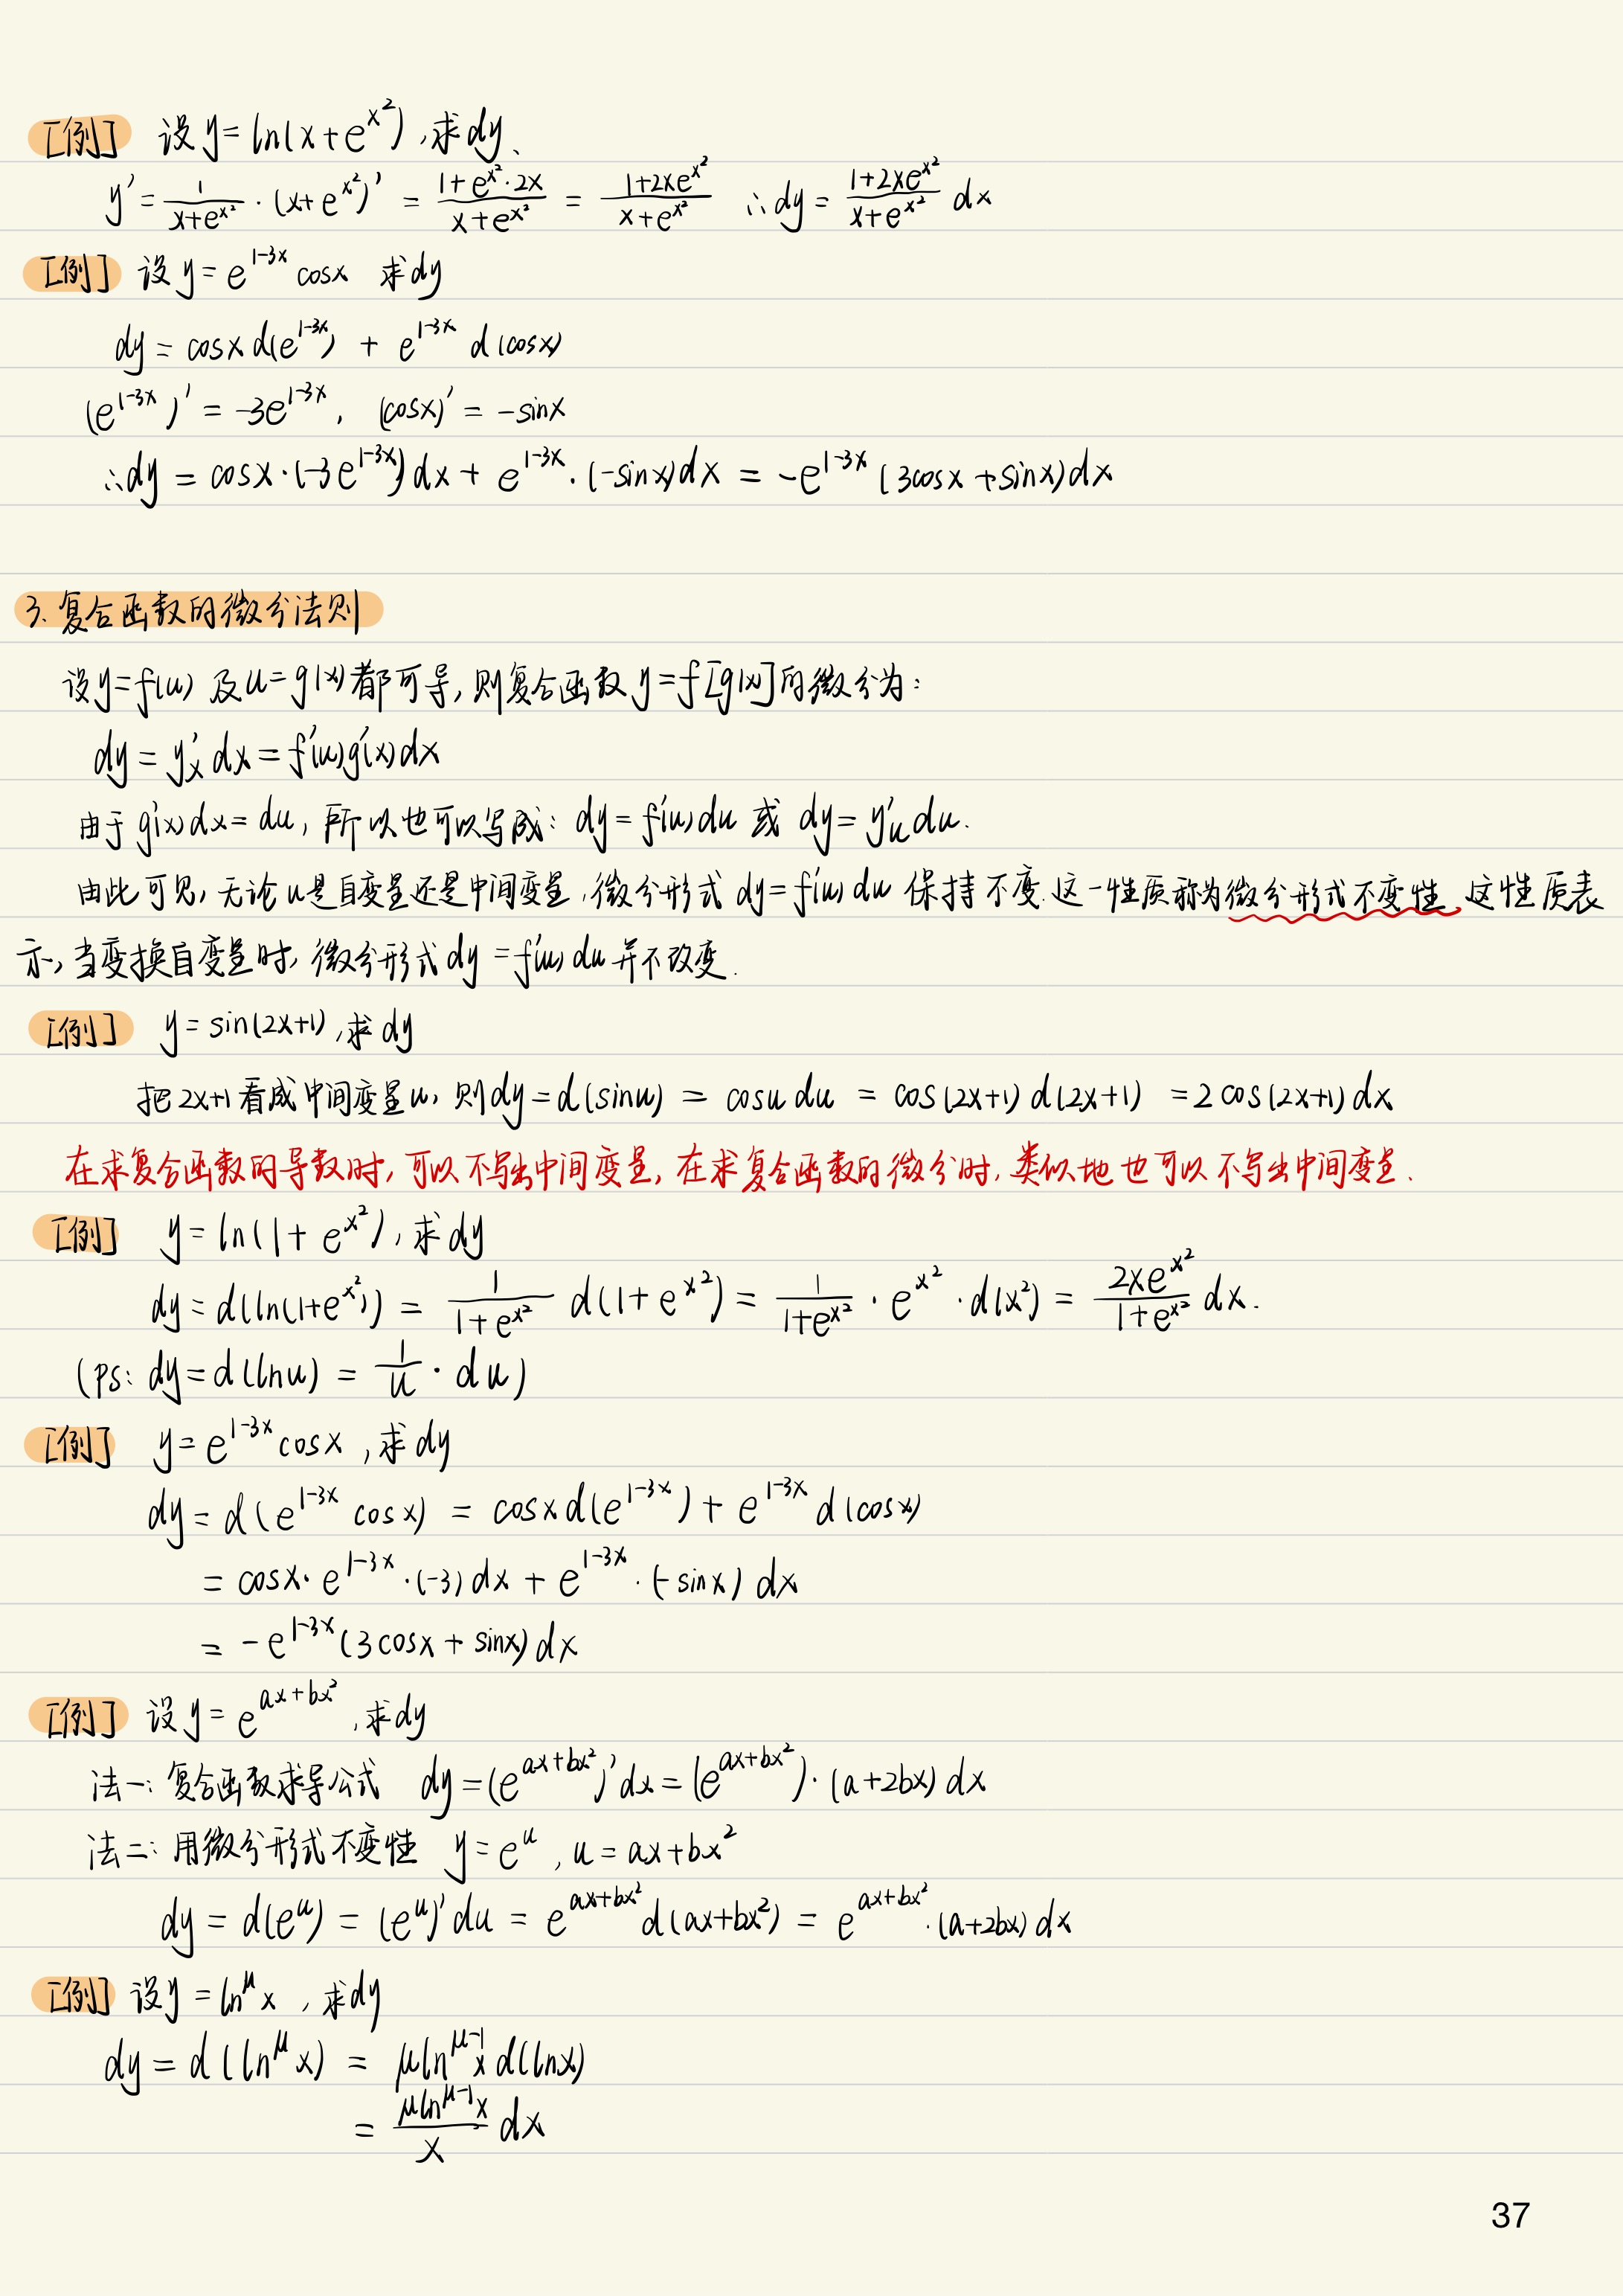 [例] 设 y = ln(x + e^{x²}), 求dy、
y' = \frac{1}{x+e^{x²}} · (x + e^{x²})' = \frac{1+e^{x²}·2x}{x+e^{x²}} = \frac{1+2xe^{x²}}{x+e^{x²}} ∴ dy = \frac{1+2xe^{x²}}{x+e^{x²}} dx
[例] 设 y = e^{1-3x} cosx 求dy
dy = cosx d(e^{1-3x}) + e^{1-3x} d(cosx)
(e^{1-3x})' = -3e^{1-3x}, (cosx)' = -sinx
∴ dy = cosx·(-3e^{1-3x})dx + e^{1-3x}·(-sinx)dx = -e^{1-3x}(3cosx + sinx)dx
3. 复合函数的微分法则
设y=f(u) 及u=g(x)都可导, 则复合函数 y=f[g(x)]的微分为:
dy = y'ₓ dx = f'(u)g'(x)dx
由于 g'(x)dx = du, 所以也可以写成: dy = f'(u)du 或 dy = y'ᵤdu.
由此可见, 无论 u是自变量还是中间变量, 微分形式 dy = f'(u)du 保持不变. 这一性质称为微分形式不变性. 这性质表
示, 当变换自变量时, 微分形式 dy = f'(u)du 并不改变.
[例] y = sin(2x+1), 求dy
把 2x+1 看成中间变量u, 则 dy = d(sinu) = cosu du = cos(2x+1) d(2x+1) = 2cos(2x+1)dx
在求复合函数的导数时, 可以不写出中间变量, 在求复合函数的微分时, 类似地也可以不写出中间变量.
[例] y = ln(1 + e^{x²}), 求dy
dy = d(ln(1+e^{x²})) = \frac{1}{1+e^{x²}} d(1 + e^{x²}) = \frac{1}{1+e^{x²}} · e^{x²} · d(x²) = \frac{2xe^{x²}}{1+e^{x²}} dx.
(ps: dy = d(lnu) = \frac{1}{u} · du)
[例] y = e^{1-3x} cosx, 求dy
dy = d(e^{1-3x} cosx) = cosx d(e^{1-3x}) + e^{1-3x} d(cosx)
= cosx·e^{1-3x}·(-3)dx + e^{1-3x}·(-sinx)dx
= -e^{1-3x}(3cosx + sinx)dx
[例] 设 y = e^{ax+bx²}, 求dy
法一: 复合函数求导公式 dy = (e^{ax+bx²})'dx = (e^{ax+bx²})·(a+2bx)dx
法二: 用微分形式不变性 y = e^u, u = ax+bx²
dy = d(e^u) = (e^u)'du = e^{ax+bx²}d(ax+bx²) = e^{ax+bx²}·(a+2bx)dx
[例] 设y = ln^μ x, 求dy
dy = d(ln^μ x) = μln^{μ-1}x d(lnx)
= \frac{μln^{μ-1}x}{x} dx
37